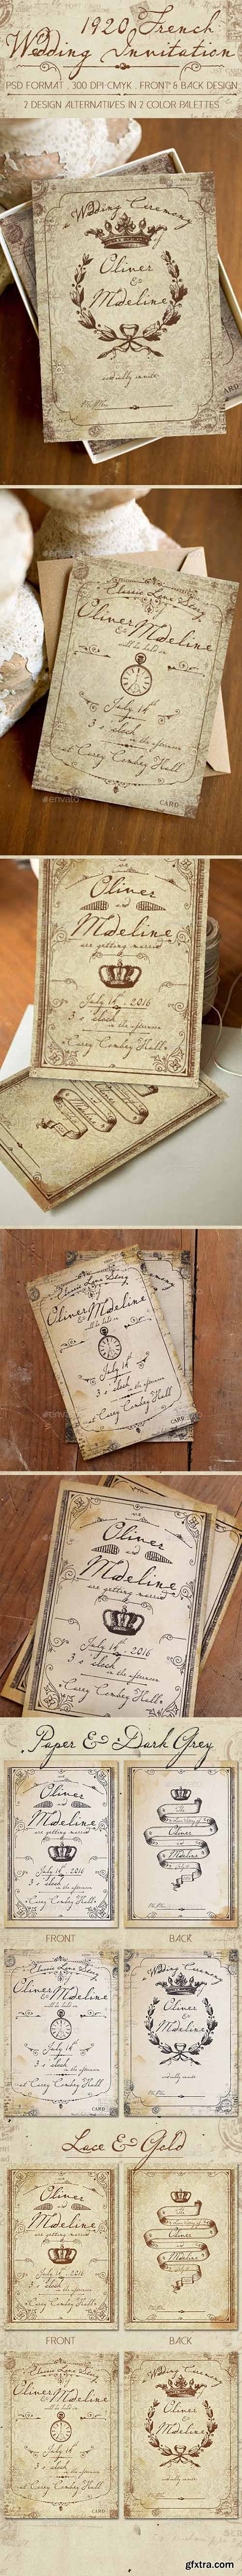 1920 French
Wedding Invitation
PSD FORMAT . 300 DPI CMYK . FRONT & BACK DESIGN
2 DESIGN ALTERNATIVES IN 2 COLOR PALETTES
Wedding Ceremony
Oliver
&
Madeline
cordially invite
CARD
Classic Love Story
Oliver & Madeline
will be held on
July 14th
3 o'clock in the afternoon
at Carey Combey Hall
CARD
envato
Oliver
and
Madeline
are getting married
July 14th 2016
3 o'clock
in the afternoon
Carey Combey Hall
Classic Love Story
Oliver & Madeline
will be held on
July 14th
3 o'clock
in the afternoon
at Carey Combey Hall
CARD
Oliver
and
Madeline
are getting married
July 14th 2016
3 o'clock
in the afternoon
Carey Combey Hall
Paper & Dark Grey
Oliver
and
Madeline
are getting married
July 14th 2016
3 o'clock
in the afternoon
Carey Combey Hall
Oliver
and
Madeline
FRONT
BACK
Classic Love Story
Oliver & Madeline
will be held on
July 14th
3 o'clock
in the afternoon
at Carey Combey Hall
CARD
Wedding Ceremony
Oliver
&
Madeline
cordially invite
Lace & Gold
Oliver
and
Madeline
are getting married
July 14th 2016
3 o'clock
in the afternoon
Carey Combey Hall
Oliver
and
Madeline
FRONT
BACK
Classic Love Story
Oliver & Madeline
will be held on
July 14th
3 o'clock
in the afternoon
at Carey Combey Hall
CARD
Wedding Ceremony
Oliver
&
Madeline
cordially invite
gfxtra.com